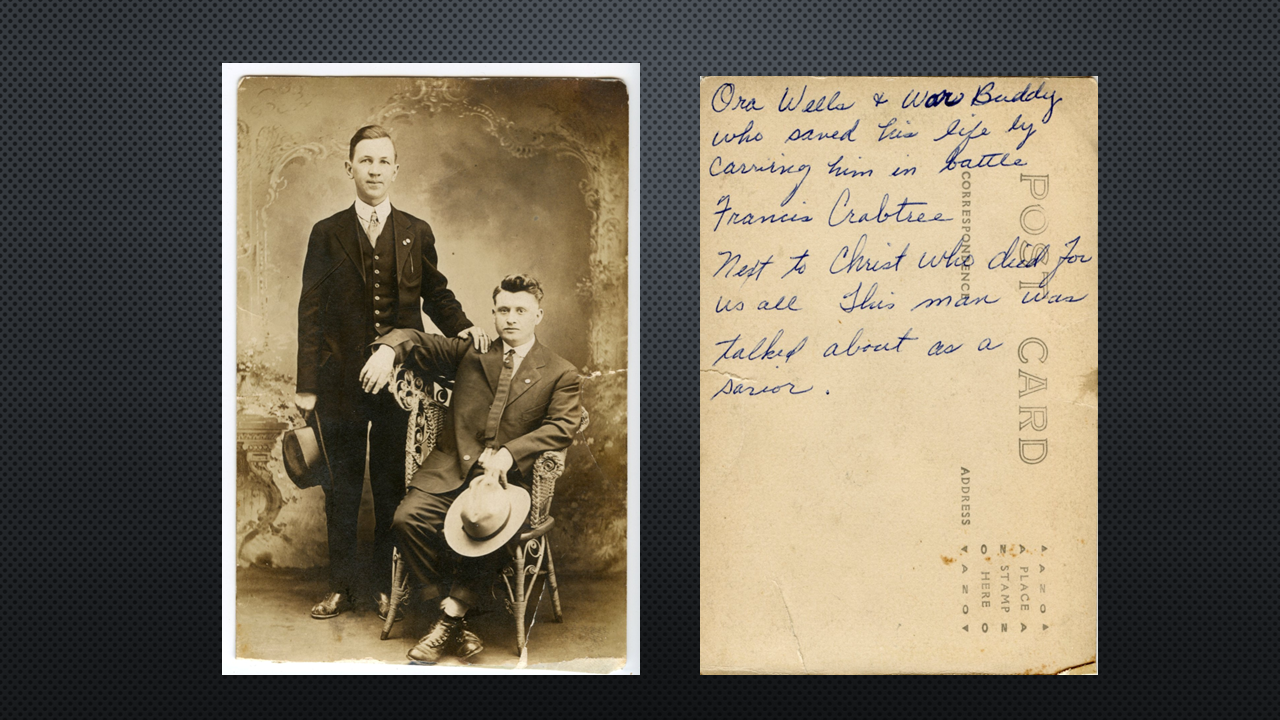 Ora Wells & War Buddy
who saved his life by
Carrying him in battle
Francis Crabtree
Next to Christ who died for
us all This man was
talked about as a
savior .
POST CARD
CORRESPONDENCE
ADDRESS
▲ A Z O ▲
A PLACE A
Z STAMP Z
O HERE O
▼ A Z O ▼